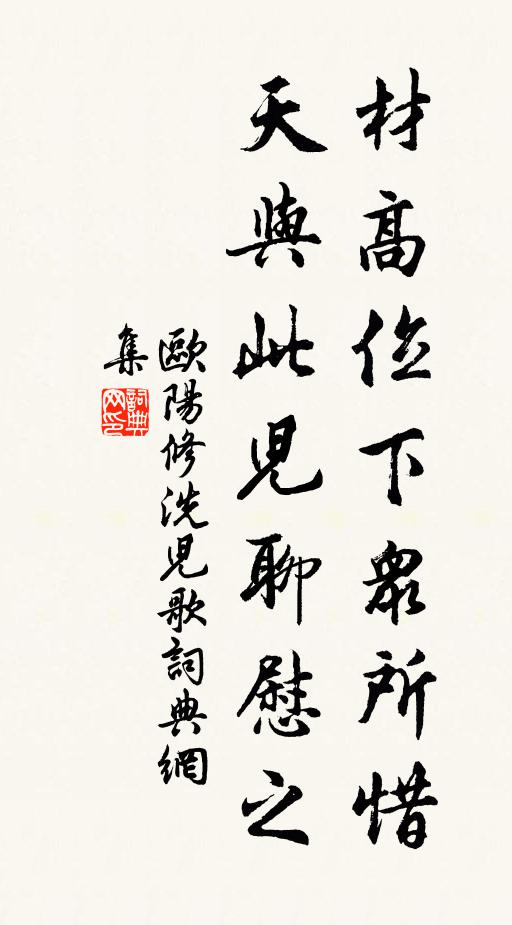 材高位下衆所惜
天與此兒聊慰之
歐陽修洗兒歌詞典網
集
詞典
网印